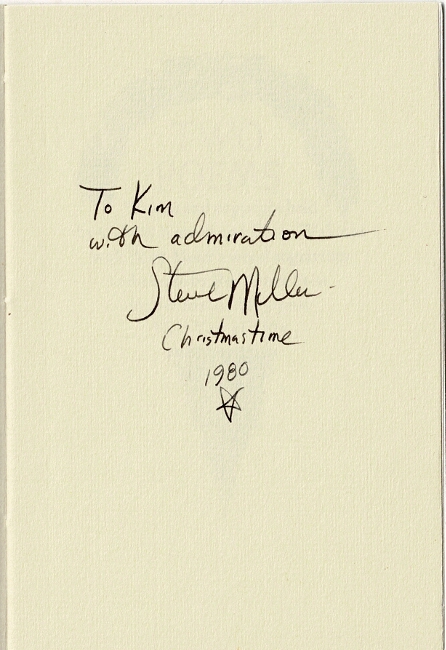 To Kim
with admiration
Steve Miller
Christmastime
1980